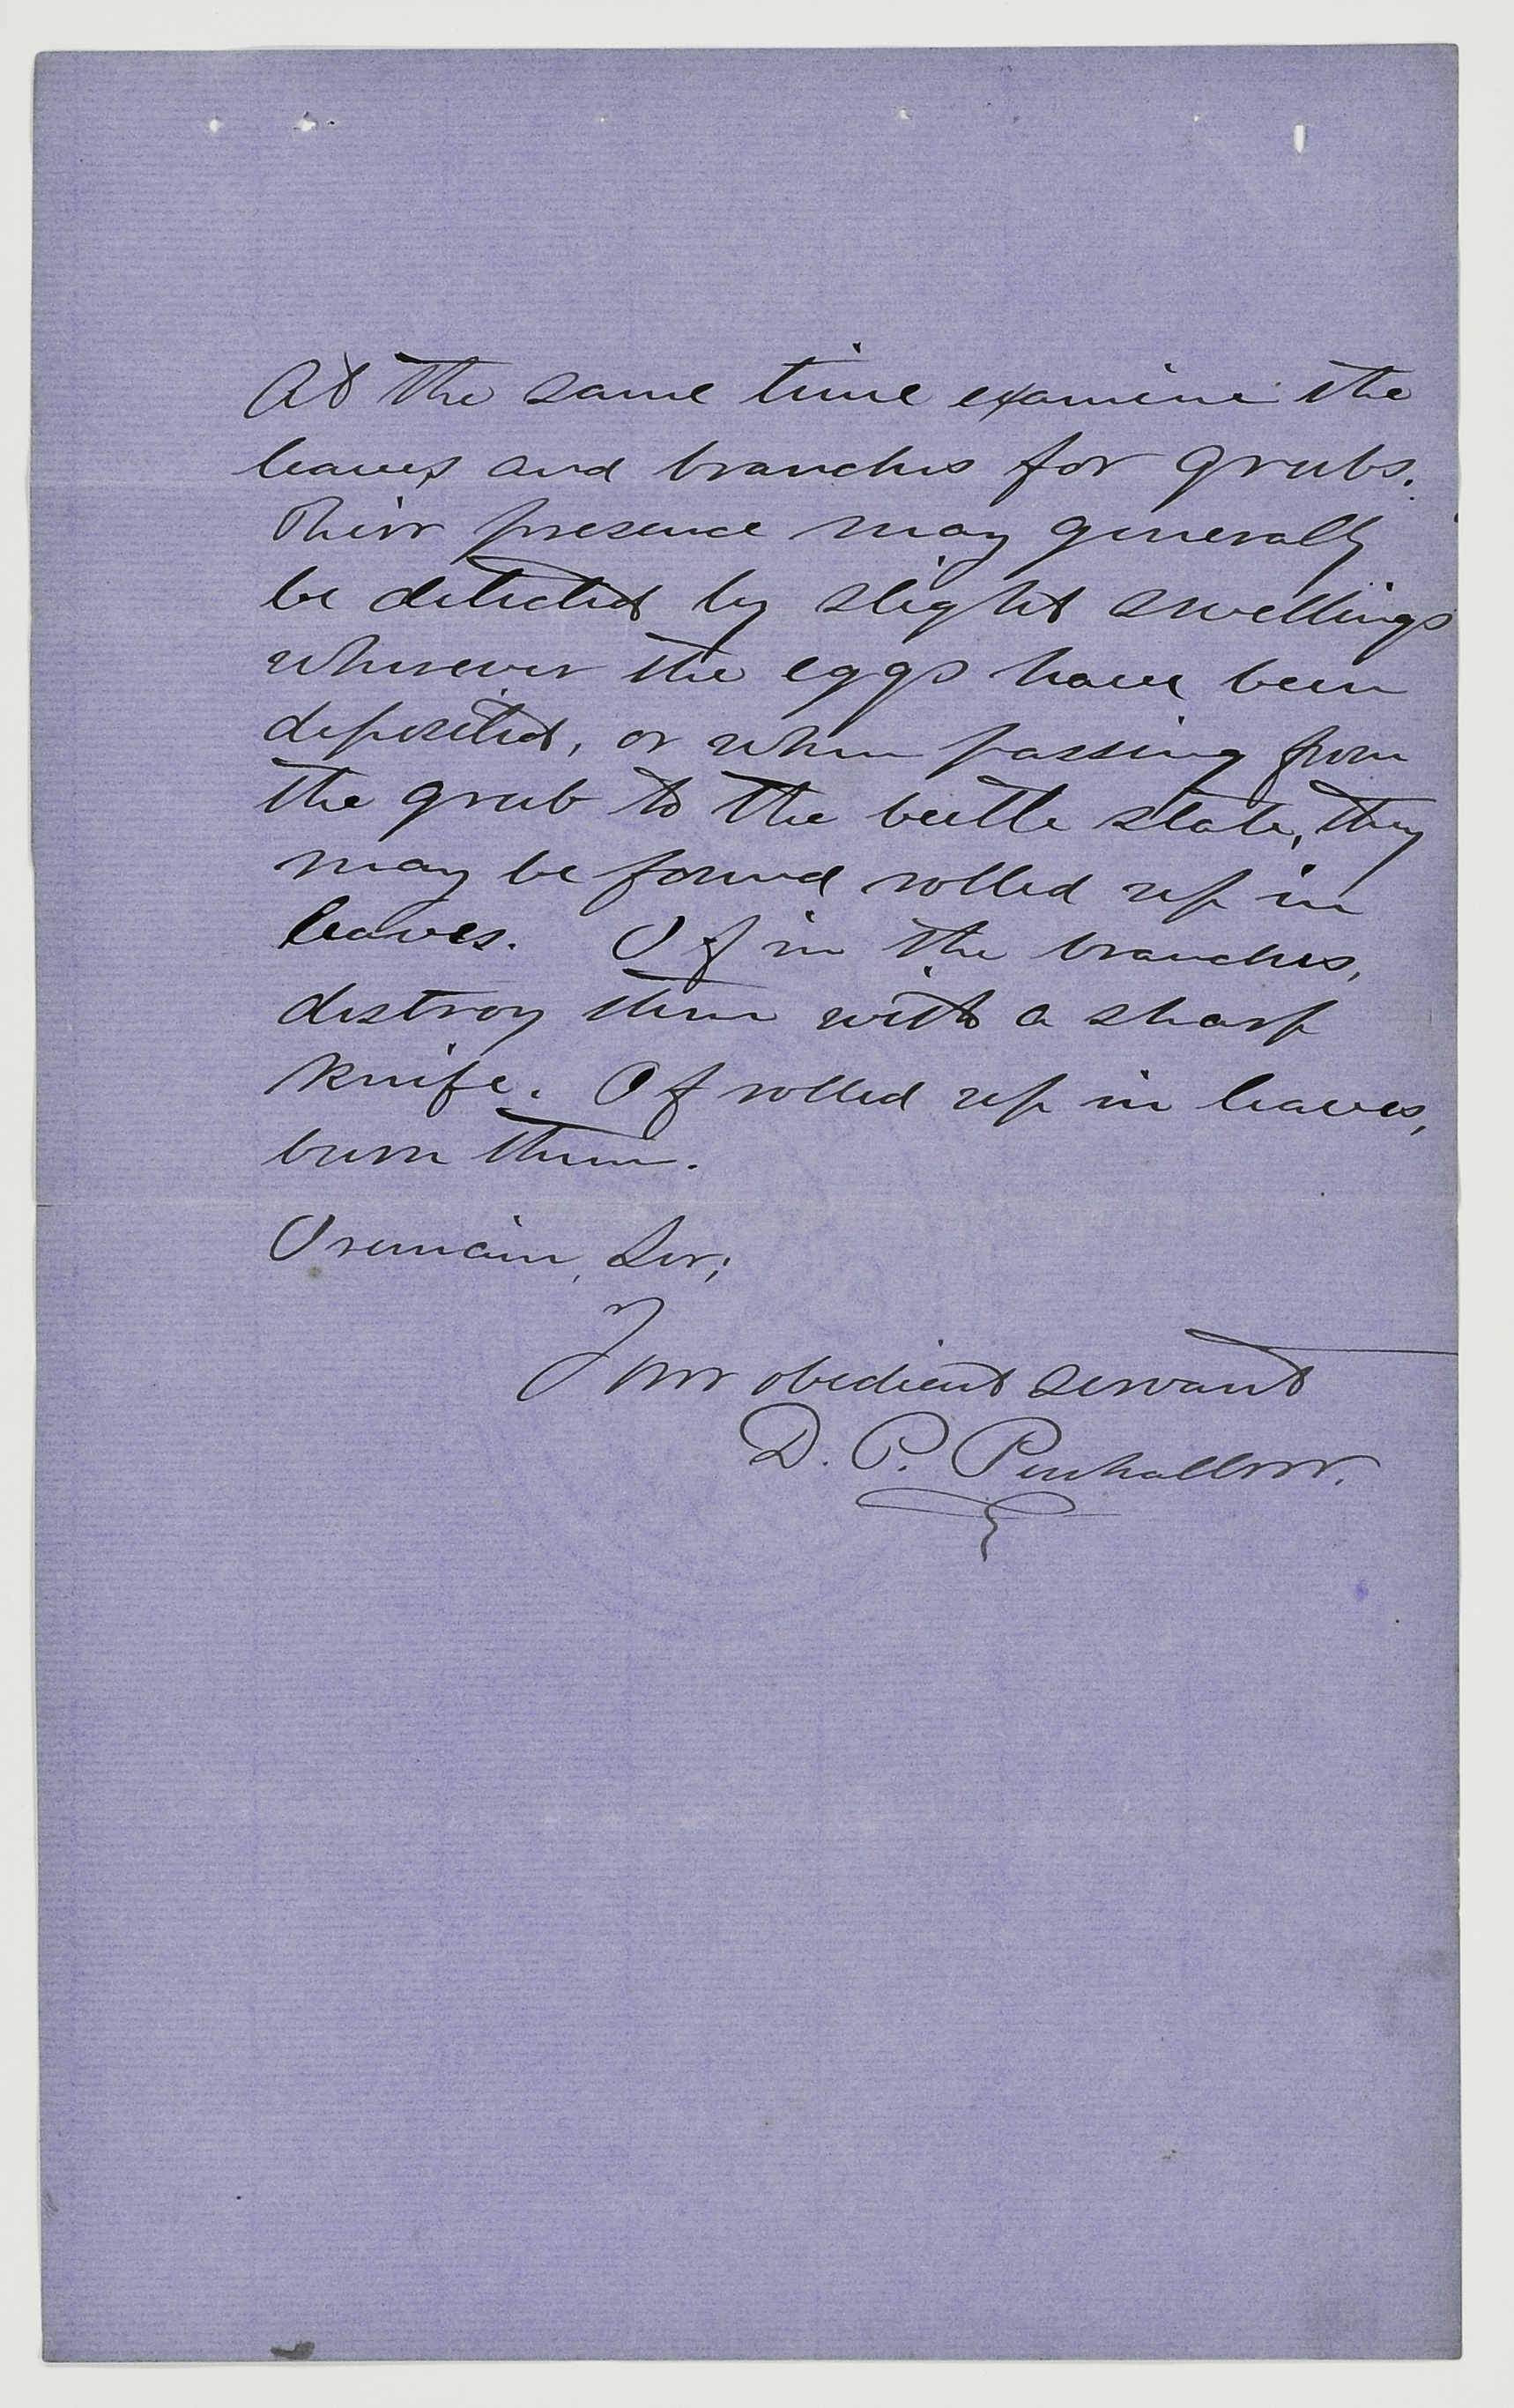 At the same time examine the
leaves and branches for grubs.
Their presence may generally
be detected by slight swellings
wherever the eggs have been
deposited, or when passing from
the grub to the beetle state, they
may be found rolled up in
leaves. If in the branches,
destroy them with a sharp
knife. If rolled up in leaves,
burn them.
I remain, Sir;
Your obedient servant
D. P. Penhallow.